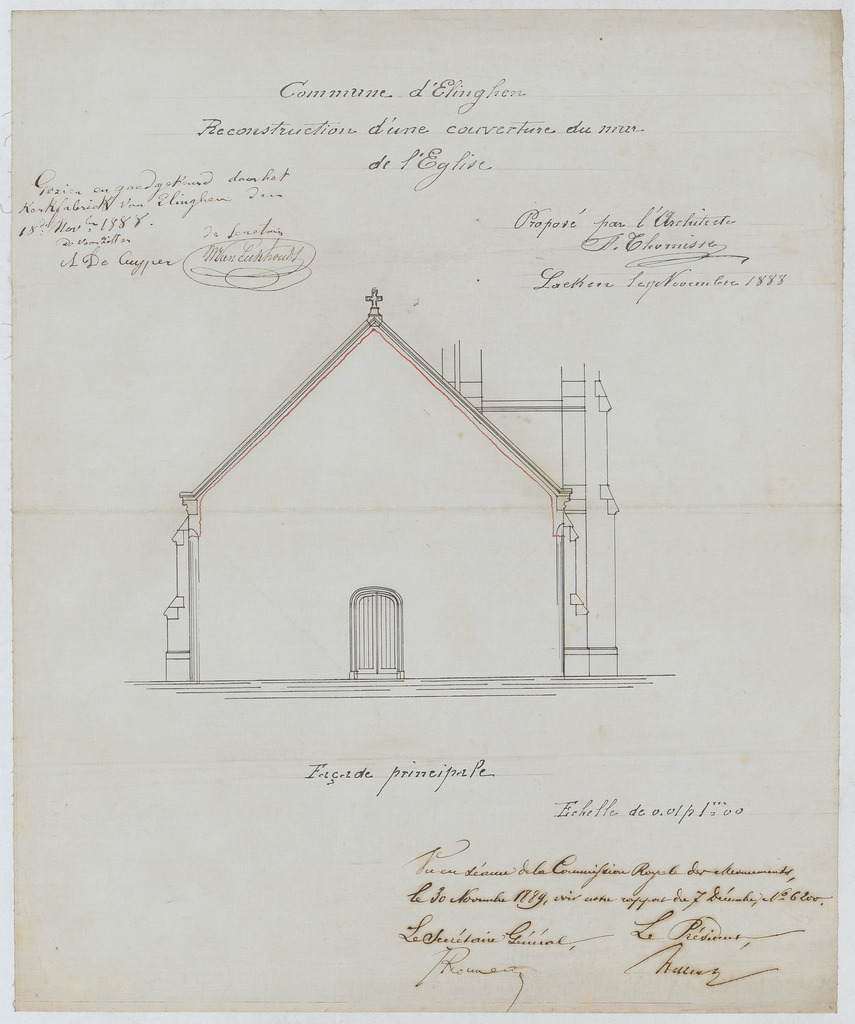 Commune d'Elinghen
Reconstruction d'une couverture du mur
de l'Eglise
Gezien en goedgekeurd door het
Kerkfabriek van Elinghen den
18en Nov. 1888.
De voorzitter
A De Cuyper
de Secretaris
Proposé par l'Architecte
Thomisse
Laeken le Novembre 1888
Façade principale
Echelle de 0.01 p 1m00
Vu en séance de la Commission Royale des Monuments,
le 30 Novembre 1889, voir notre rapport du 7 Décembre, No 6200.
Le Secrétaire Général, Le Président,